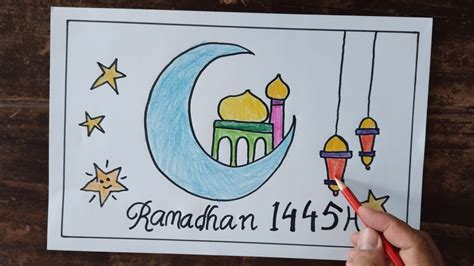 Ramadhan 1445H